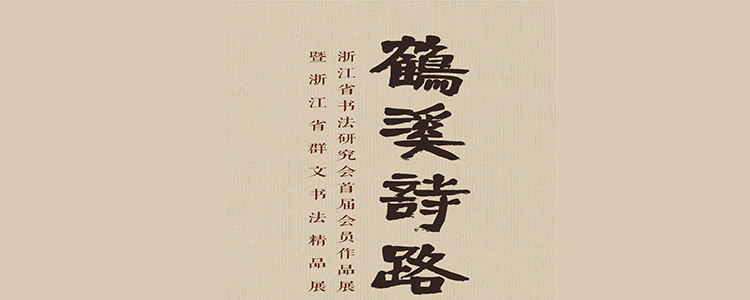 鶴溪詩路
浙江省书法研究会首届会员作品展
暨浙江省群文书法精品展